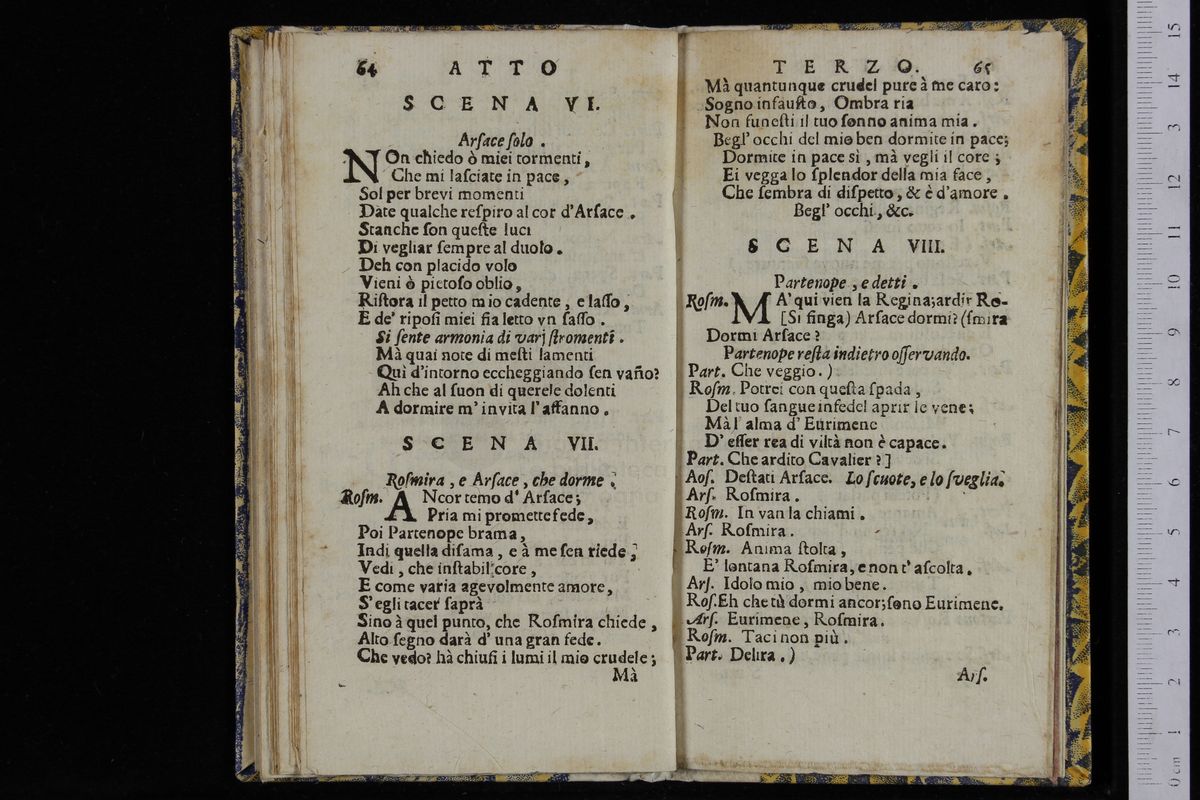 64 ATTO
SCENA VI.
Arſace ſolo.
NOn chiedo ò miei tormenti,
Che mi laſciate in pace,
Sol per brevi momenti
Date qualche reſpiro al cor d'Arſace.
Stanche ſon queſte luci
Di vegliar ſempre al duolo.
Deh con placido volo
Vieni ò pietoſo oblio,
Riſtora il petto mio cadente, e laſſo,
E de' ripoſi miei ſia letto vn ſaſſo.
Si ſente armonia di varj ſtromenti.
Mà quai note di meſti lamenti
Quì d'intorno eccheggiando ſen vaño?
Ah che al ſuon di querele dolenti
A dormire m'invita l'affanno.
SCENA VII.
Roſmira, e Arſace, che dorme.
Roſm. ANcor temo d'Arſace;
Pria mi promette fede,
Poi Partenope brama,
Indi quella diſama, e à me ſen riede;
Vedi, che inſtabil core,
E come varia agevolmente amore,
S'egli tacer ſaprà
Sino à quel punto, che Roſmira chiede,
Alto ſegno darà d'una gran fede.
Che vedo? hà chiuſi i lumi il mio crudele;
Mà
TERZO. 65
Mà quantunque crudel pure à me caro:
Sogno infauſto, Ombra ria
Non funeſti il tuo ſonno anima mia.
Begl'occhi del mio ben dormite in pace;
Dormite in pace sì, mà vegli il core;
Ei vegga lo ſplendor della mia face,
Che ſembra di diſpetto, & è d'amore.
Begl'occhi, &c.
SCENA VIII.
Partenope, e detti.
Roſm. MA' qui vien la Regina; ardir Ro-
[Si finga) Arſace dormi? (ſmira
Dormi Arſace?
Partenope reſta indietro oſſervando.
Part. Che veggio.)
Roſm. Potrei con queſta ſpada,
Del tuo ſangue infedel aprir le vene;
Mà l'alma d'Eurimene
D'eſſer rea di viltà non è capace.
Part. Che ardito Cavalier?]
Aoſ. Deſtati Arſace. Lo ſcuote, e lo ſveglia.
Arſ. Roſmira.
Roſm. In van la chiami.
Arſ. Roſmira.
Roſm. Anima ſtolta,
E' lontana Roſmira, e non t'aſcolta.
Arſ. Idolo mio, mio bene.
Roſ. Eh che tù dormi ancor; ſono Eurimene.
Arſ. Eurimene, Roſmira.
Roſm. Taci non più.
Part. Delira.)
Arſ.
0 cm 1 2 3 4 5 6 7 8 9 10 11 12 13 14 15